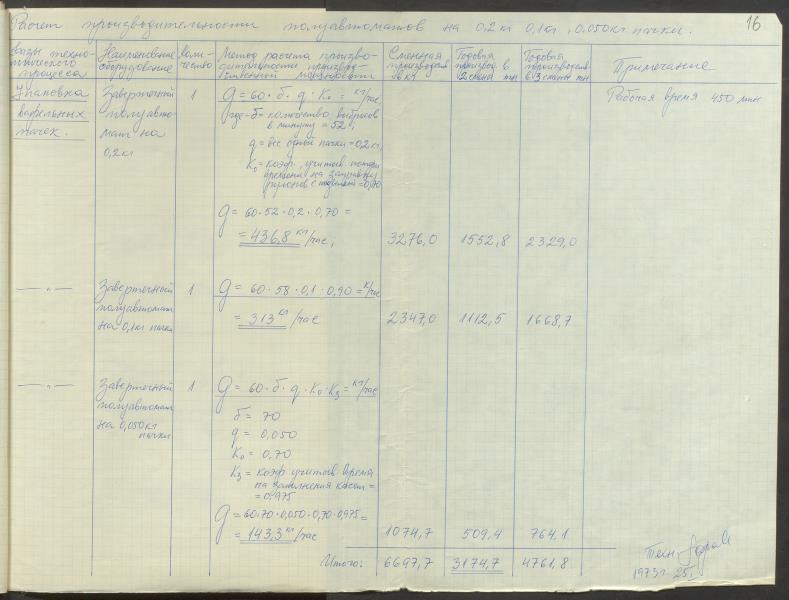 16
Расчет производительности полуавтоматов на 0,2 кг 0,1 кг, 0,050 кг пачки.
Фазы техно-
логического
процесса
Наименование
оборудования
Коли-
чество
Метод расчета произво-
дительности произвол-
ственной мощности
Сменная
производ.
в кг
Годовая
производ. в
2 смена тн
Годовая
производств.
в 3 смены тн
Примечание
Упаковка
вафельных
пачек.
Заверточный
полуавто-
мат на
0,2 кг
1
g = 60 · б · q · К₀ = кг/час,
где б = количество выбросов
в минуту = 52,
q = вес одной пачки = 0,2 кг,
К₀ = коэф., учитыв. потери
времени на заправку
рулонов с = 0,70
g = 60 · 52 · 0,2 · 0,70 =
= 436,8 кг/час,
3276,0
1552,8
2329,0
Рабочая время 450 мин
— " —
Заверточный
полуавтомат
на 0,1 кг пачки
1
g = 60 · 58 · 0,1 · 0,90 = к/час
= 313 кг/час
2347,0
1112,5
1668,7
— " —
Заверточный
полуавтомат
на 0,050 кг
пачки
1
g = 60 · б · q · К₀ · К₃ = кг/час
б = 70
q = 0,050
К₀ = 0,70
К₃ = коэф. учитыв. время
на наполнения кассет =
= 0,975
g = 60 · 70 · 0,050 · 0,70 · 0,975 =
= 143,3 кг/час
1074,7
509,4
764,1
Итого:
6697,7
3174,7
4761,8
Техн.
1973 г. 25.